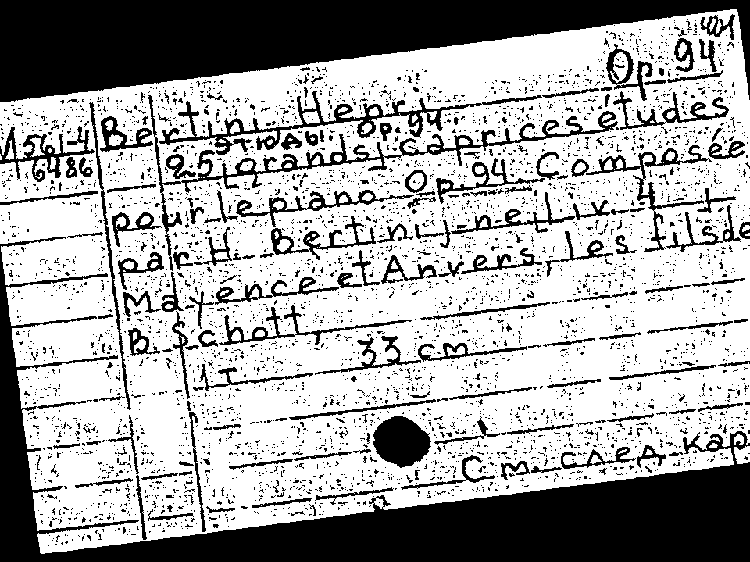 Op. 94
Bertini Henri
М 561-4
6486
Этюды. Op. 94.
25 [grands] caprices études
pour le piano Op. 94 Composée
par H. Bertini j-ne Liv. 4
Mayence et Anvers, les fils de
B. Schott,
1 т 33 cm
См. след кар